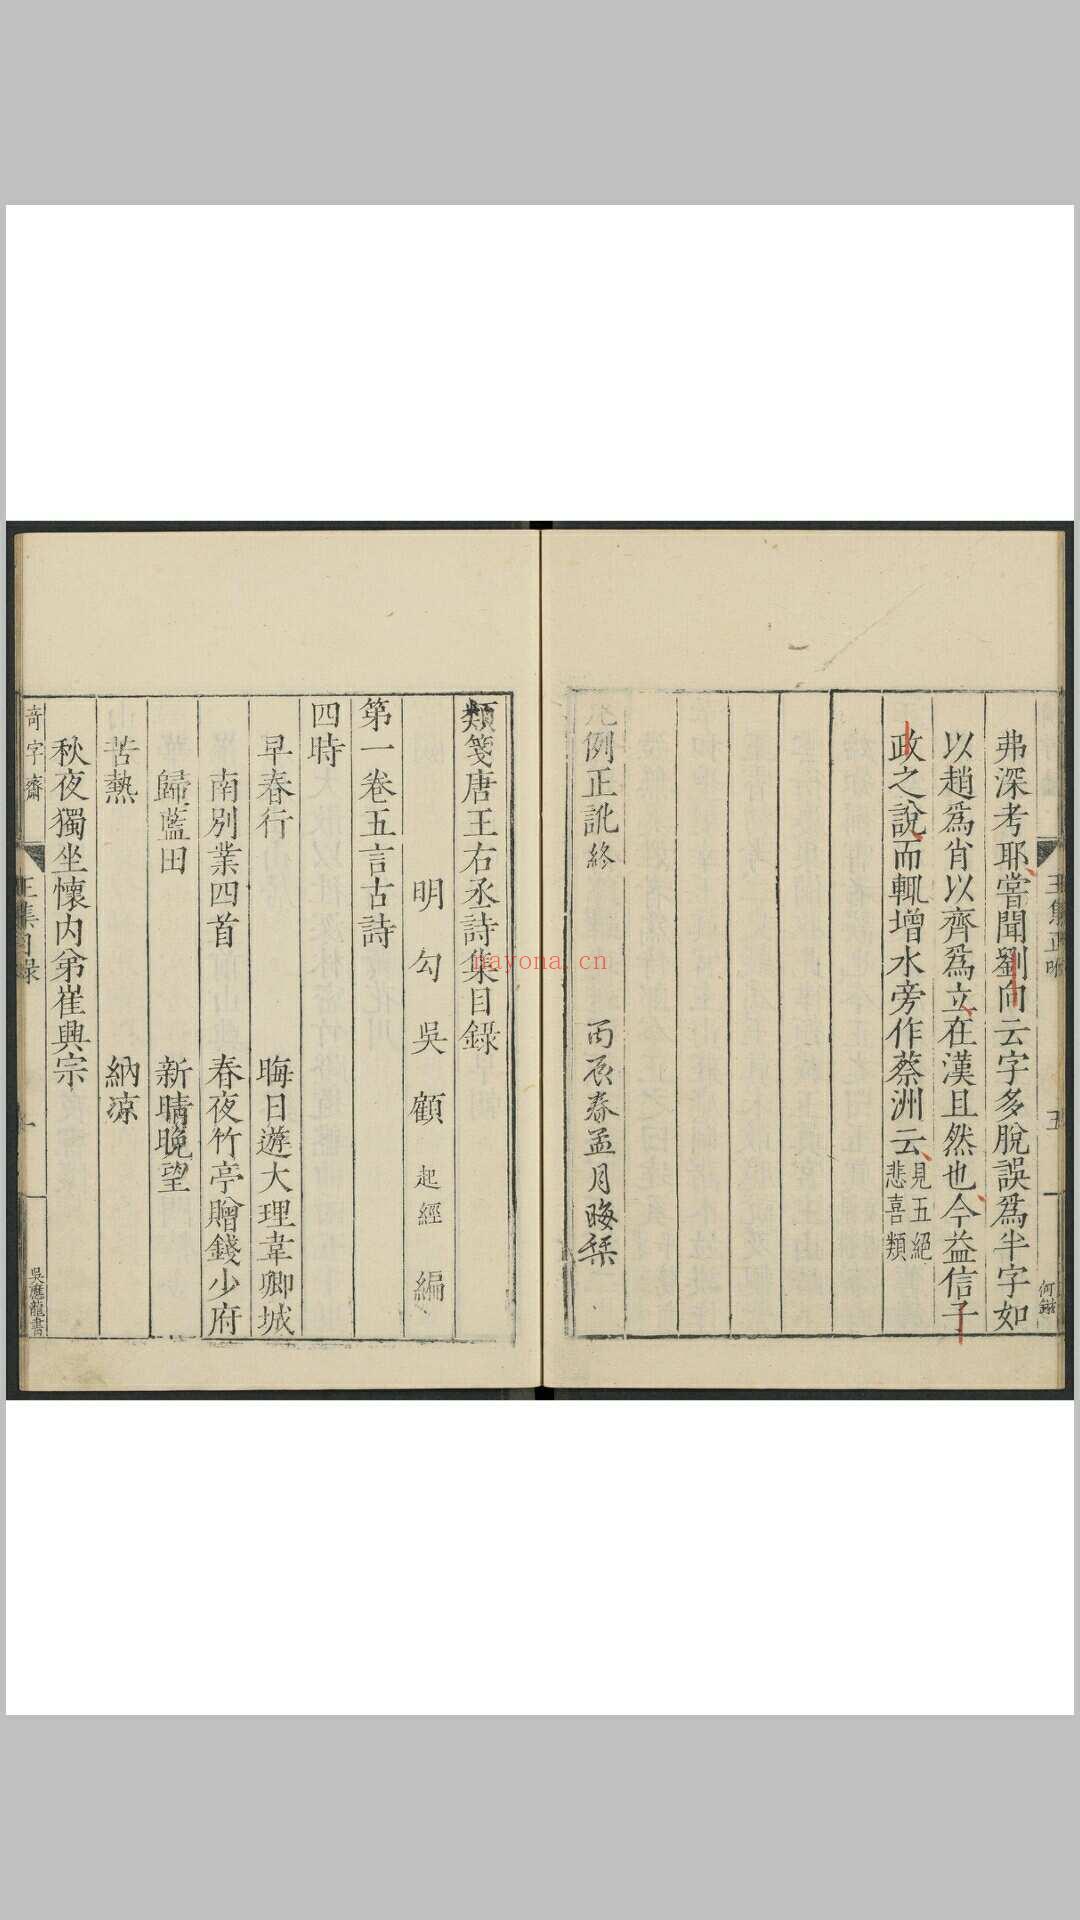 弗深考耶嘗聞劉向云字多脫誤爲半字如
以趙爲肖以齊爲立在漢且然也今益信子
政之說而輒增水旁作蔡洲云見五絕
悲喜類
凡例正訛終
丙辰春孟月晦栞
王集正訛
五
何鈿
類箋唐王右丞詩集目錄
明勾吳顧起經編
第一卷五言古詩
四時
早春行 晦日遊大理韋卿城
南別業四首 春夜竹亭贈錢少府
歸藍田 新晴晚望
苦熱 納涼
秋夜獨坐懷內弟崔興宗
奇字齋
王集目錄
一
吳應龍書
nayona.cn